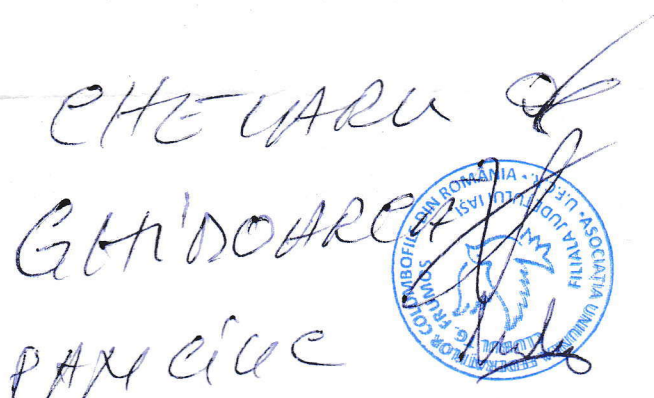 CHELARU
GHIDOARCA
ASOCIAȚIA UNIUNEA FEDERAȚIILOR COLOMBOFILE DIN ROMÂNIA • U.F.C.R. •
FILIALA JUDEȚULUI IAȘI
CLUBUL TG. FRUMOS